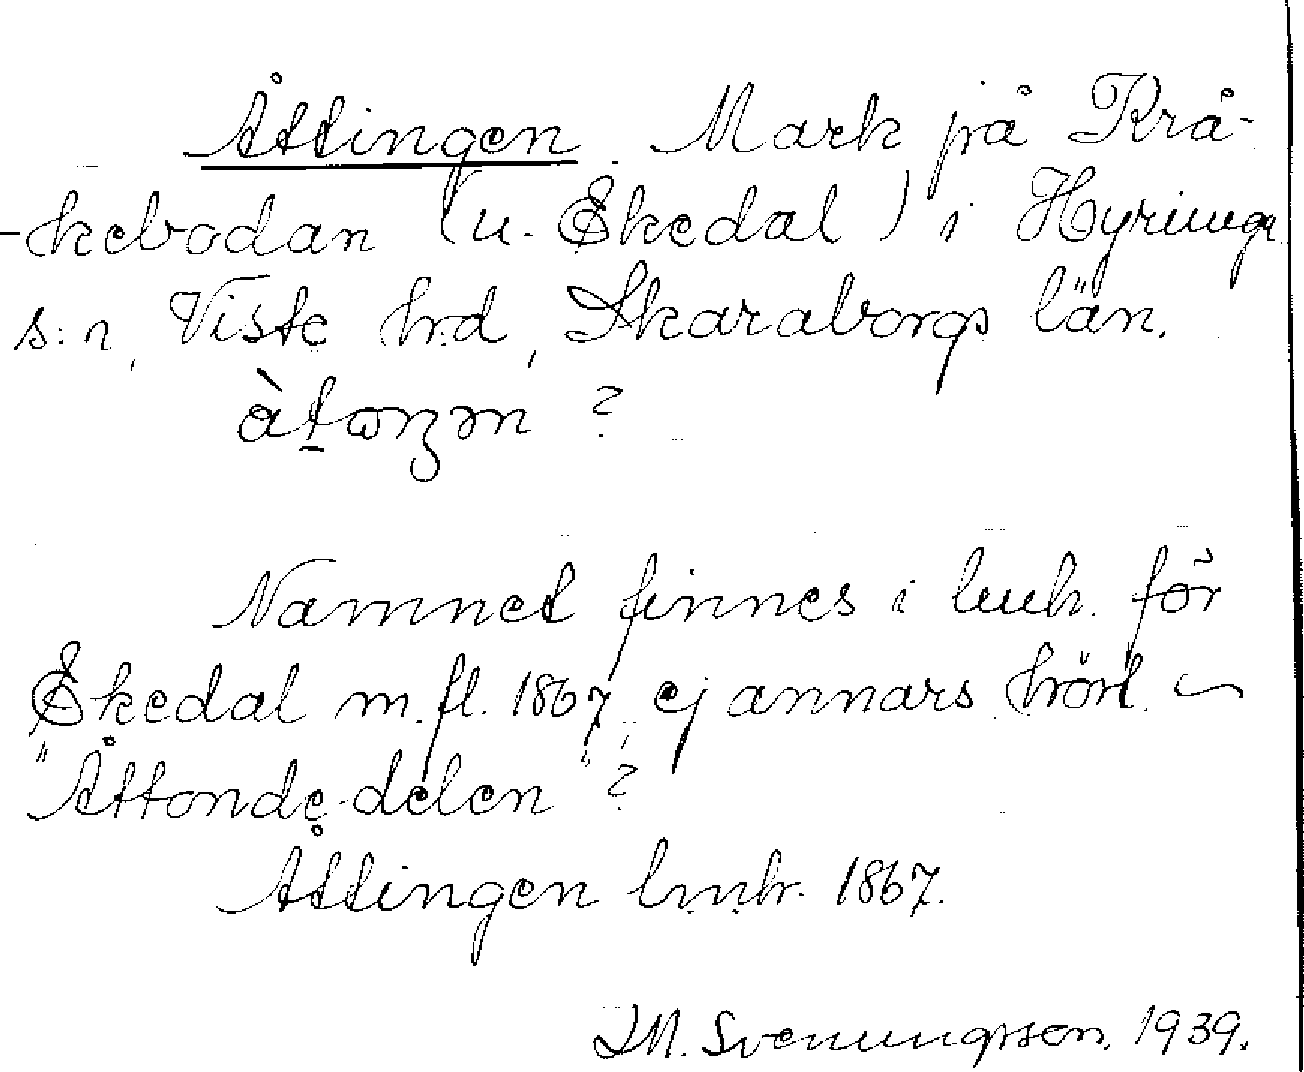 Åttingen. Mark på Krå-
-kebodan (u. Ekedal) i Hyringa
s:n, Viste hrd, Skaraborgs län.
àtⱺŋən ?
Namnet finnes i lmh. för
Ekedal m.fl. 1867, ej annars hört. ~
"Åttonde-delen"?
Åttingen lmh. 1867.
I.M. Svenungsson. 1939.